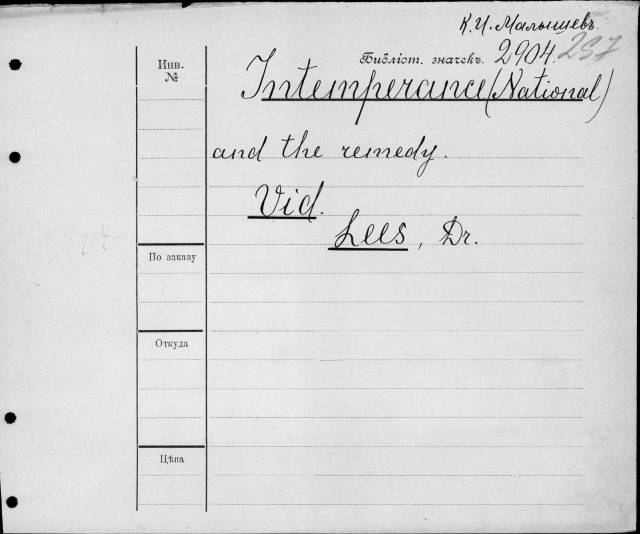 К. И. Малышевъ.
Инв. №
Библіот. значекъ. 2904. 257
Intemperance (National)
and the remedy.
Vid.
Lees, Dr.
По заказу
Откуда
Цѣна